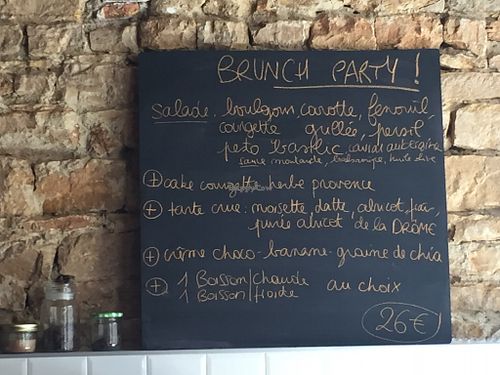 BRUNCH PARTY !
salade : boulgour, carotte, fenouil,
courgette grillée, persil,
pesto basilic caviar aubergine
sauce moutarde, balsamique, huile olive
+ cake courgette herbe provence
+ tarte crue : noisette, datte, abricot, frais,
purée abricot de la DRÔME
+ crème choco-banane-graine de chia
+ 1 Boisson/chaude au choix
1 Boisson/froide
26€